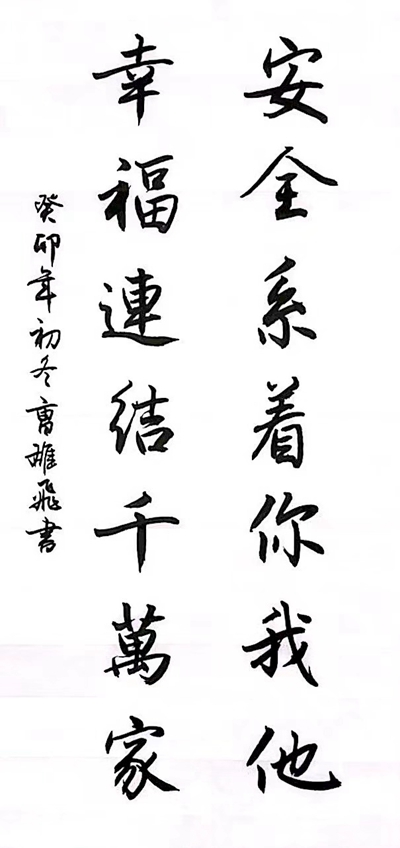 安全系着你我他
幸福連结千萬家
癸卯年初冬曹雄飛書